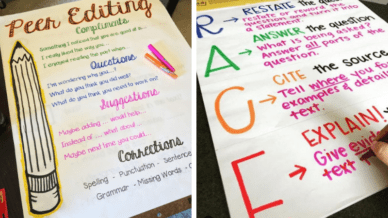 Peer Editing
Compliments
Something I noticed that you are good at is...
I really liked the way you...
I enjoyed reading the part when...
Questions
I'm wondering why you...?
What did you do well?
What do you think you need to work on?
Suggestions
Maybe adding... would help...
Instead of... what about...
Maybe next time you could...
Corrections
Spelling - Punctuation - Sentence
Grammar - Missing Words -
R
RESTATE the question
Restate or reword the
question and turn it into
a statement.
A
ANSWER the question
What is being asked?
Answer all parts of the
question.
C
CITE the source
Tell where you
examples & details
text.
E
EXPLAIN!
Give
text